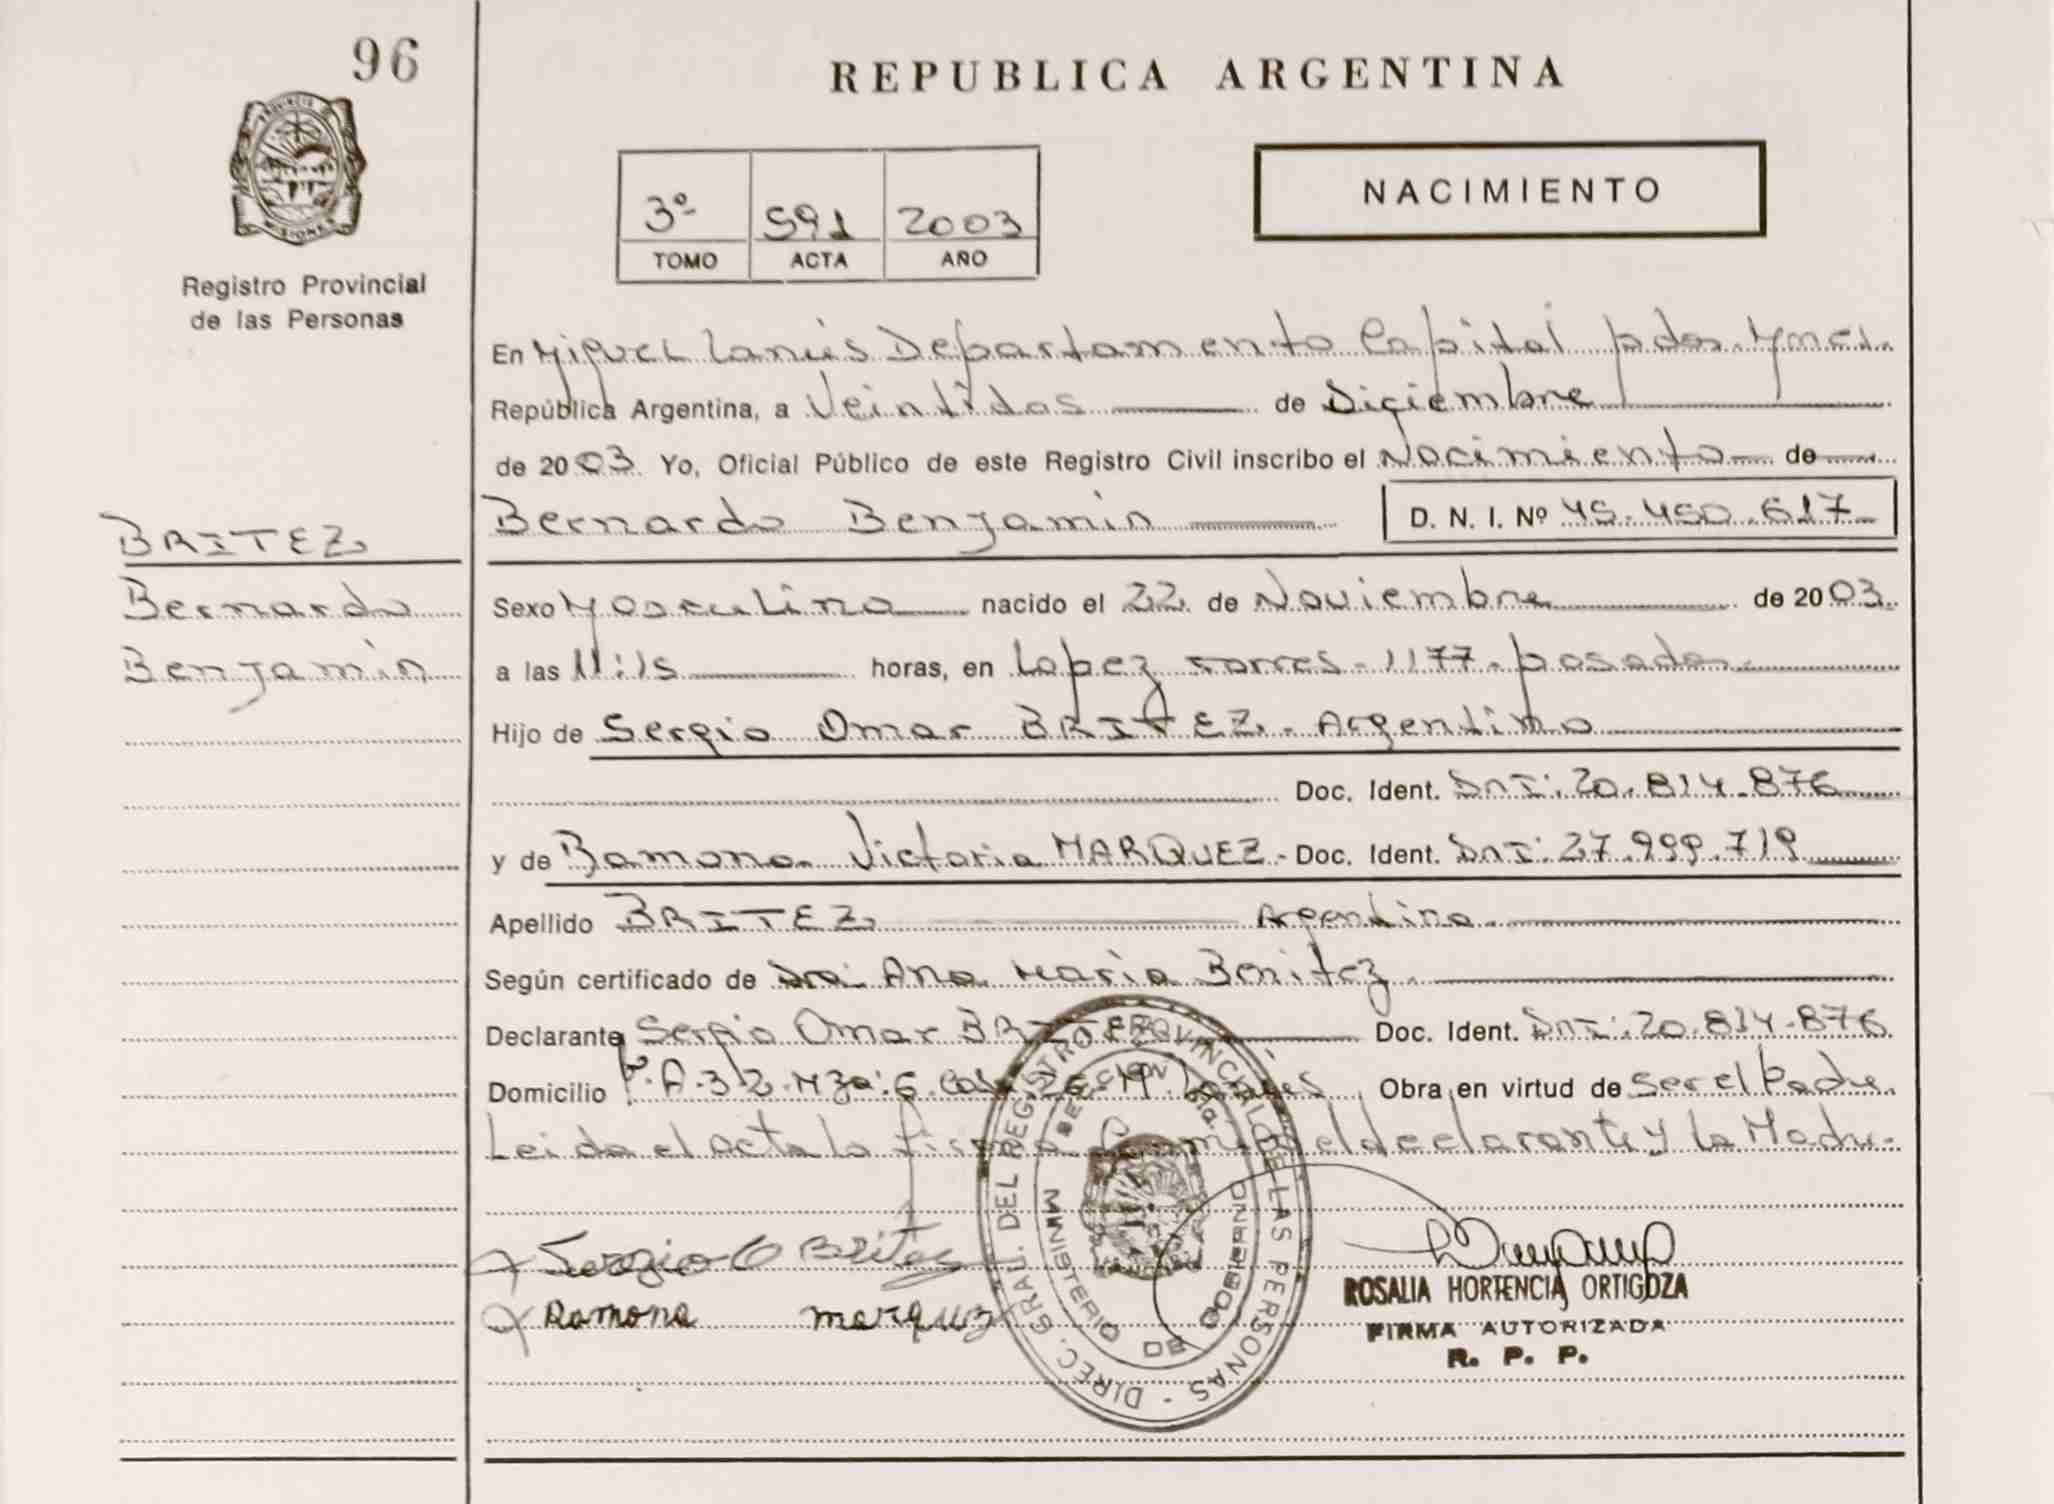 96
REPUBLICA ARGENTINA
PROVINCIA DE
MISIONES
Registro Provincial
de las Personas
3º 591 2003
TOMO ACTA AÑO
NACIMIENTO
En Miguel Lanús Departamento Capital pdas. Mnes.
República Argentina, a Veintidos de Diciembre
de 2003 Yo, Oficial Público de este Registro Civil inscribo el Nacimiento de
BRITEZ
Bernardo
Benjamin
Bernardo Benjamin D. N. I. Nº 45.450.617
Sexo Masculino nacido el 22 de Noviembre de 2003.
a las 11:15 horas, en Lopez Torres - 1177 - posadas.
Hijo de Sergio Omar BRITEZ. Argentino
Doc. Ident. DNI: 20.814.876
y de Ramona Victoria MARQUEZ - Doc. Ident. DNI: 27.999.719
Apellido BRITEZ Argentina
Según certificado de Dra: Ana Maria Benitez
Declarante Sergio Omar BRITEZ Doc. Ident. DNI: 20.814.876
Domicilio A-32-Mza:6. Casa 26-M. Lanús Obra en virtud de ser el Padre.
Leida el acta la firma el declarante y la Madre.
DIREC. GRAL. DEL REGISTRO PROVINCIAL DE LAS PERSONAS -
SECCION
MINISTERIO DE GOBIERNO
Sergio O Britez
Ramona marquez
ROSALIA HORTENCIA ORTIGOZA
FIRMA AUTORIZADA
R. P. P.